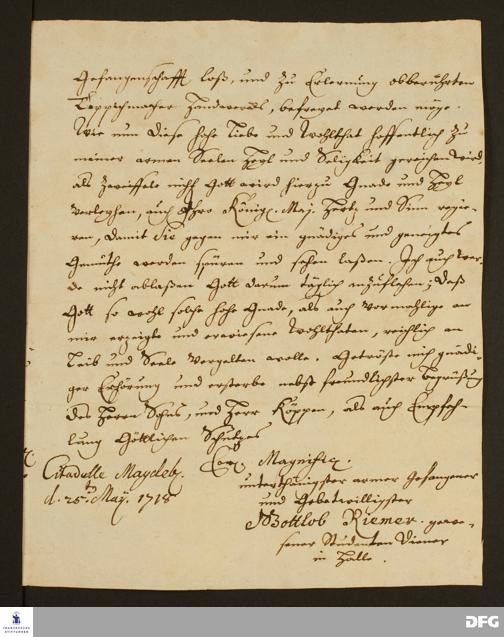 Gefangenschafft loß, und zu Erlernung obberührten
Teppichmacher Handwercks, befreyet werden möge.
Wie nun diese hohe Liebe und Wohlthat hoffentlich zu
meiner armen Seelen Heyl und Seligkeit gereichen wird,
als zweiffele nicht Gott wird hierzu Gnade und Heyl
verleyhen, auch Ihro Königl. Maj. Hertz und Sinn regie-
ren, damit Sie gegen mir ein gnädiges und geneigtes
Gemüthe werden spüren und sehen laßen. Ich auch wer-
de nicht ablaßen Gott darum täglich anzuflehen; daß
Gott so wohl solche hohe Gnade, als auch vormahlige an
mir erzeigte und erwiesene Wohlthaten, reichlich an
Leib und Seele vergelten wolle. Getröste mich gnädi-
ger Erhörung und ersterbe nebst freundlichster Begrüßung
des Herrn und Herr Köppen, als auch Empfeh-
lung Göttlichen Schutzes
Citadelle Magdeb.
d. 25t. Maÿ. 1718
Ew. Magnific.
unterthänigster armer Gefangener
und Gebetwilligster
Gottlob Riemer. gewe-
sener Studenten Diener
in Halle.
FRANCKESCHE
STIFTUNGEN
DFG